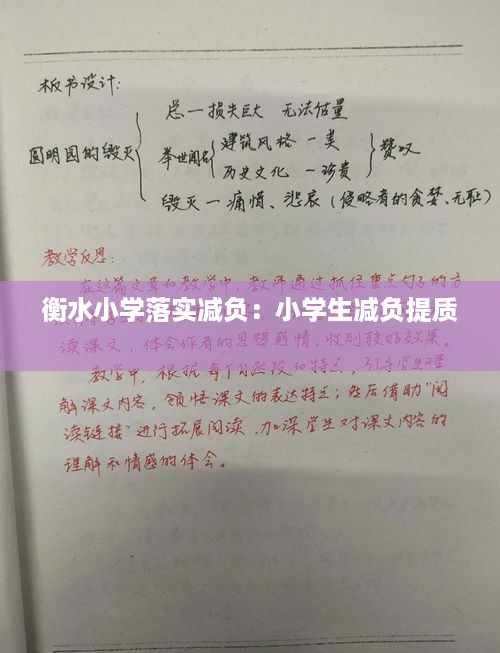 板书设计:
总一损失巨大 无法估量
圆明园的毁灭
举世闻名
建筑风格 一美
历史文化 一珍贵
赞叹
毁灭一痛惜、悲哀(侵略者的贪婪、无耻)
教学反思:
在这篇文章的教学中,教师通过抓住重点句子的方
衡水小学落实减负:小学生减负提质
读课文,体会作者的思想感情,收到较好效果。
教学中,根据每个自然段的特点,引导学生理
解课文内容,领悟课文的表达特点;然后借助“阅
读链接”进行拓展阅读,加深学生对课文内容的
理解和情感的体会。